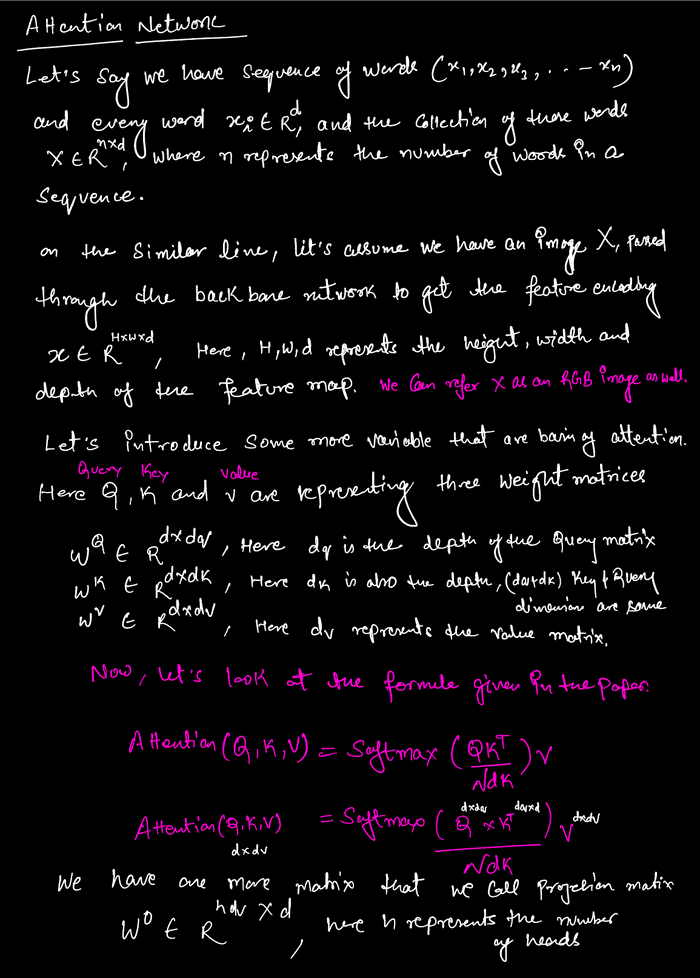 Attention Network
Let's say we have sequence of words (x₁,x₂,x₃, . . . - xₙ)
and every word xᵢ ∈ R^d, and the collection of those words
X ∈ R^{n×d}, where n represents the number of words in a
sequence.
on the similar line, let's assume we have an image X, passed
through the backbone network to get the feature encoding
x ∈ R^{H×W×d}, Here, H,W,d represents the height, width and
depth of the feature map. We can refer X as an RGB image as well.
Let's introduce some more variable that are basis of attention.
Query Key Value
Here Q, K and V are representing three weight matrices
W^Q ∈ R^{d×dq}, Here dq is the depth of the Query matrix
W^K ∈ R^{d×dk}, Here dk is also the depth, (dq+dk) Key & Query
dimension are same
W^V ∈ R^{d×dv}, Here dv represents the value matrix.
Now, let's look at the formula given in the paper.
Attention(Q,K,V) = Softmax (QK^T / √dk) V
Attention(Q,K,V) = Softmax (Q × K^T) V^{d×dv}
d×dq dq×d
d×dv √dk
We have one more matrix that we call projection matix
W^O ∈ R^{hdv × d}, here h represents the number
of heads